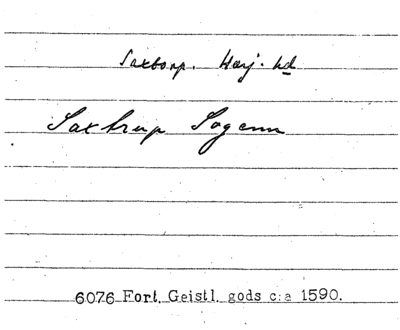 Saxtorp. Harj. hd
Saxtrup Sogenn
6076 Fort. Geistl. gods c:a 1590.